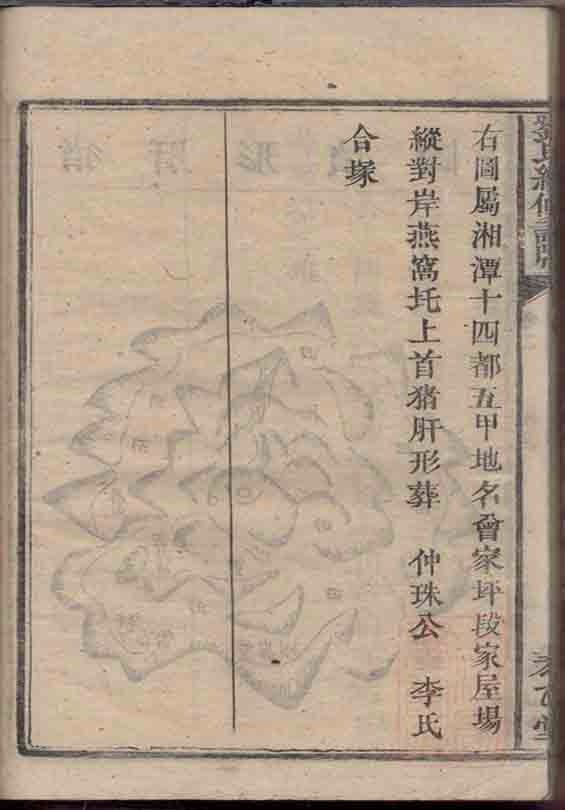 右圖屬湘潭十四都五甲地名曾家坪段家屋場
縱對岸燕窩圫上首猪肝形葬 仲珠公 李氏
合塚